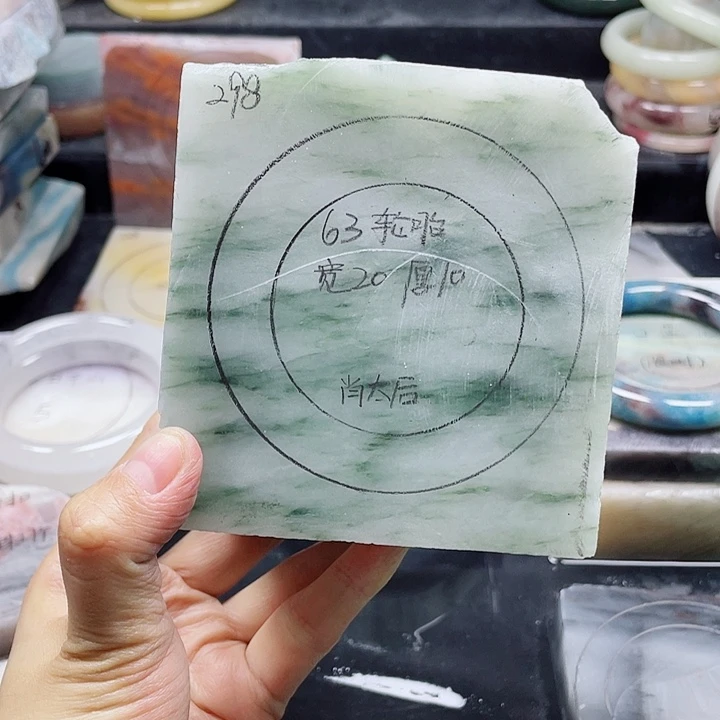 298
63轮胎
宽20 厚10
肖太后